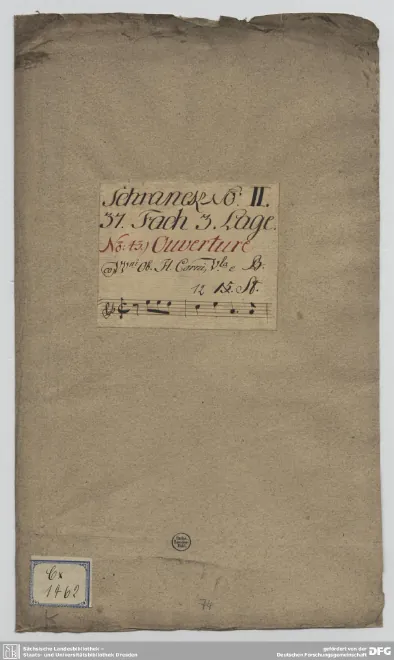 Schranck No: II.
37. Fach 3. Lage.
No: 13) Ouverture
co VVni Ob. Fl. Corni, Vla e B.
12 St.
Cx
1462
74
Sächsische Landesbibliothek –
Staats- und Universitätsbibliothek Dresden
gefördert von der
Deutschen Forschungsgemeinschaft DFG